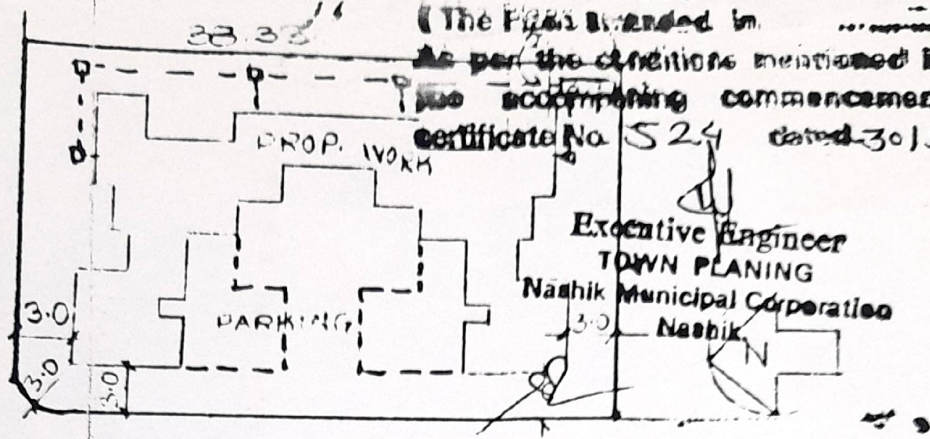 (The Plan amended in
33.33
As per the conditions mentioned
accompaning commencemen
certificate No 524 dated 301.
PROP. WORK
Executive Engineer
TOWN PLANING
Nashik Municipal Corporation
Nashik.
3.0
PARKING
3.0
N
3.0
3.0